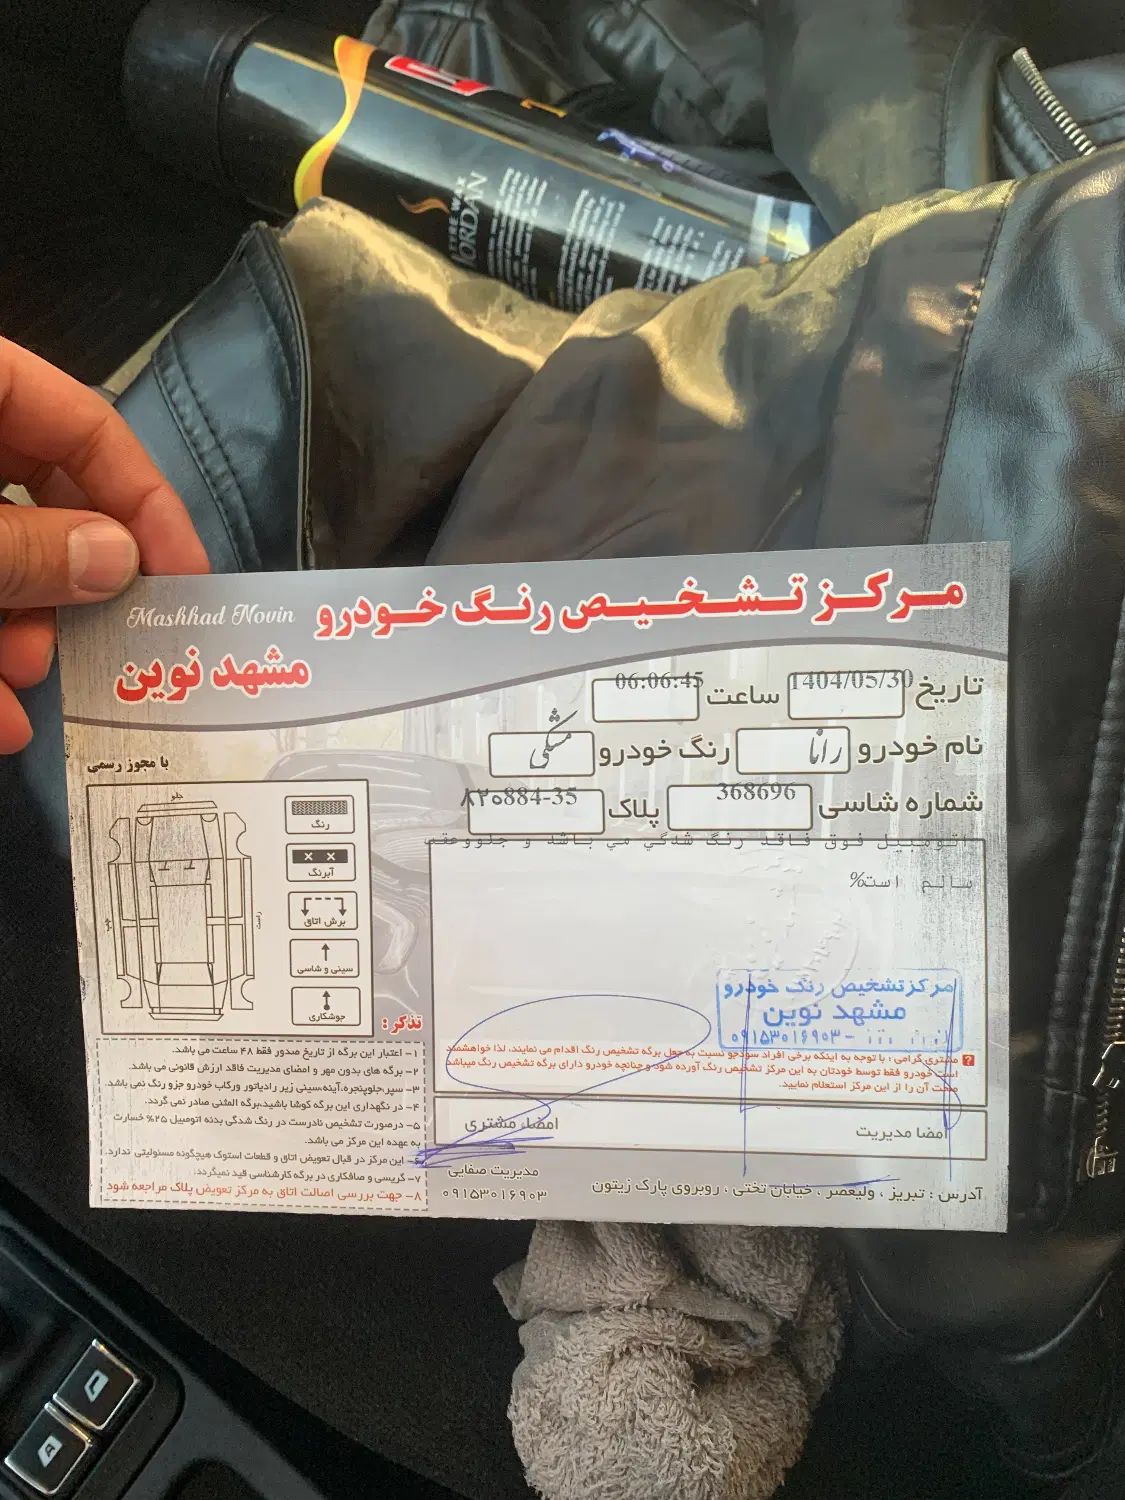 TYRE WAX
JORDAN
مرکز تشخیص رنگ خودرو
Mashhad Novin
مشهد نوین
تاریخ 1404/05/30 ساعت 06:06:45
نام خودرو رانا رنگ خودرو مشکی
شماره شاسی 368696 پلاک ۸۲۰884-35
اتومبیل فوق فاقد رنگ شدگي مي باشد و جلووعقب
سالم است%
با مجوز رسمی
جلو
راست
چپ
رنگ
× ×
آبرنگ
برش اتاق
سینی و شاسی
جوشکاری
تذکر :
۱- اعتبار این برگه از تاریخ صدور فقط ۴۸ ساعت می باشد.
۲- برگه های بدون مهر و امضای مدیریت فاقد ارزش قانونی می باشد.
۳- سپر،جلوپنجره،آینه،سینی زیر رادیاتور ورکاب خودرو جزو رنگ نمی باشد.
۴- در نگهداری این برگه کوشا باشید،برگه المثنی صادر نمی گردد.
۵- درصورت تشخیص نادرست در رنگ شدگی بدنه اتومبیل ۲۵% خسارت
به عهده این مرکز می باشد.
۶- این مرکز در قبال تعویض اتاق و قطعات استوک هیچگونه مسئولیتی ندارد.
۷- گریسی و صافکاری در برگه کارشناسی قید نمیگردد.
۸- جهت بررسی اصالت اتاق به مرکز تعویض پلاک مراجعه شود
مرکز تشخیص رنگ خودرو
مشهد نوین
۰۹۱۵۳۰۱۶۹۰۳ -
مشتری گرامی : با توجه به اینکه برخی افراد سودجو نسبت به جعل برگه تشخیص رنگ اقدام می نمایند، لذا خواهشمند
است خودرو فقط توسط خودتان به این مرکز تشخیص رنگ آورده شود و چنانچه خودرو دارای برگه تشخیص رنگ میباشد
صحت آن را از این مرکز استعلام نمایید.
امضا مدیریت
امضاء مشتری
مدیریت صفایی
۰۹۱۵۳۰۱۶۹۰۳
آدرس : تبریز ، ولیعصر ، خیابان تختی ، روبروی پارک زیتون